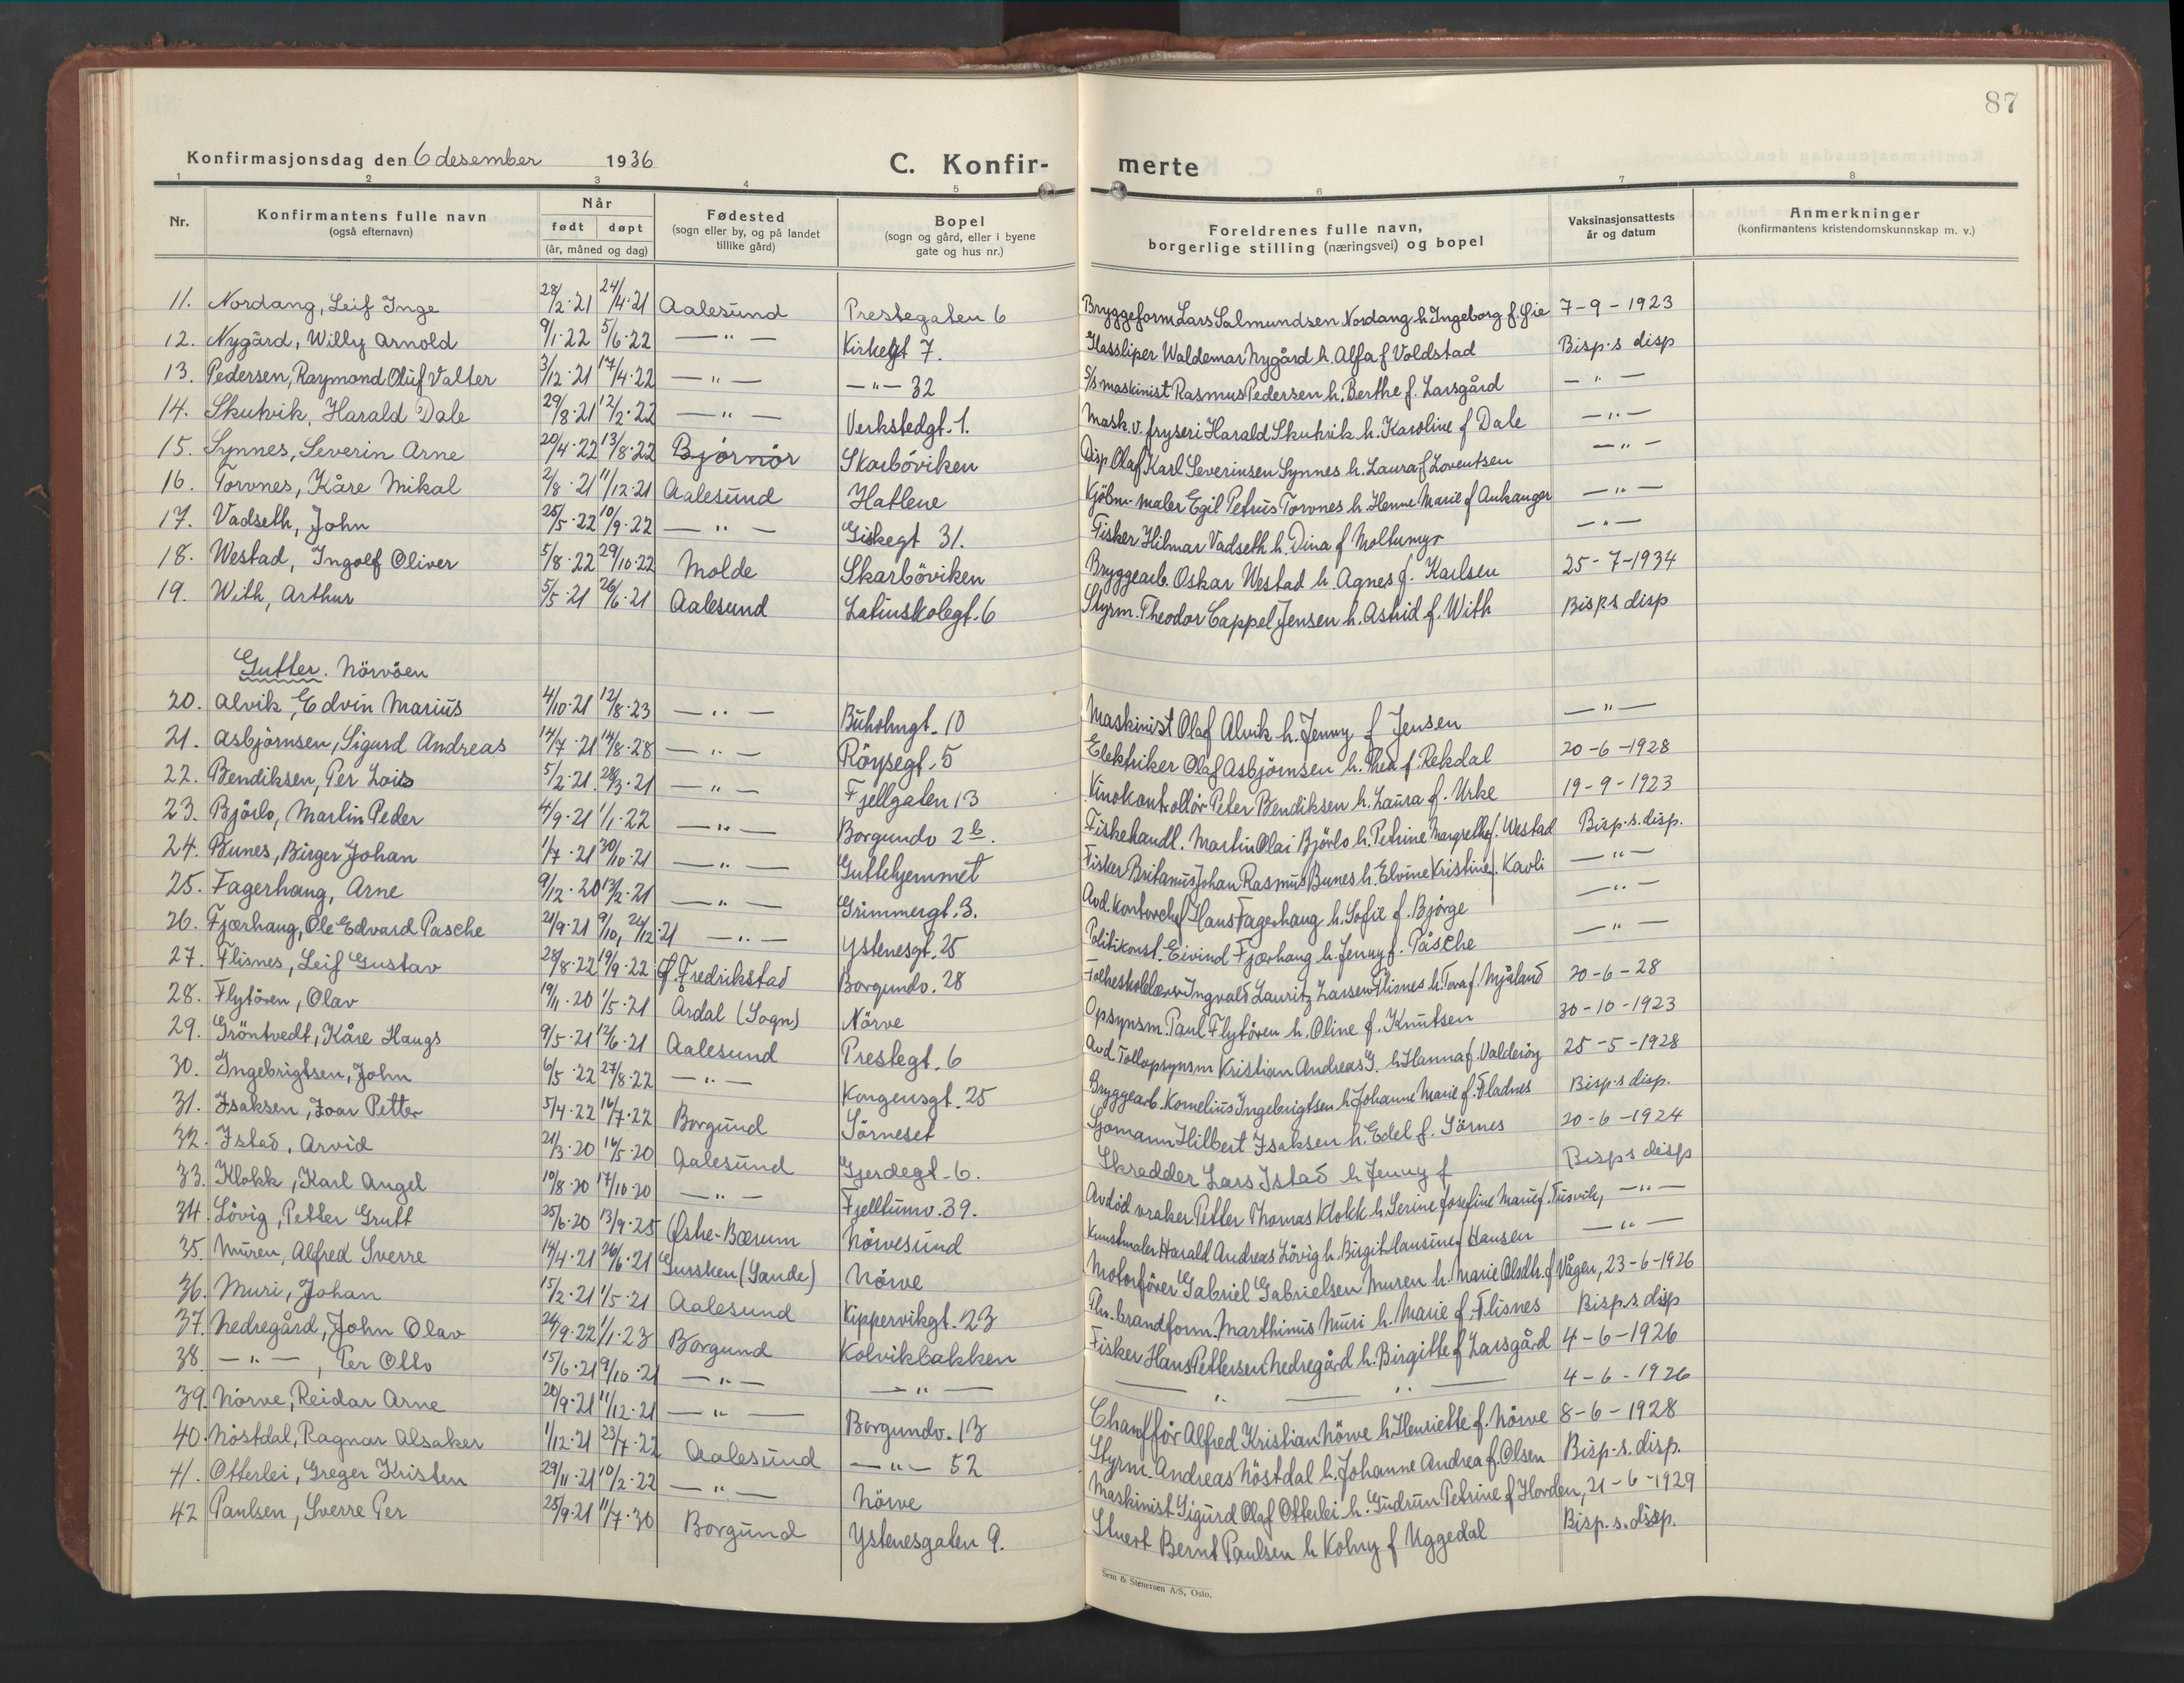 87
Konfirmasjonsdag den 6 desember 1936
C. Konfir- merte
1 2 3 4 5 6 7 8
Nr. Konfirmantens fulle navn (også efternavn) Når født døpt (år, måned og dag) Fødested (sogn eller by, og på landet tillike gård) Bopel (sogn og gård, eller i byene gate og hus nr.) Foreldrenes fulle navn, borgerlige stilling (næringsvei) og bopel Vaksinasjonsattests år og datum Anmerkninger (konfirmantens kristendomskunnskap m. v.)
11. Nordang, Leif Inge 28/2·21 24/4·21 Aalesund Prestegaten 6 Bryggeform Lars Salmundsen Nordang h. Ingeborg f. Gie 7-9-1923
12. Nygård, Willy Arnold 9/1·22 5/6·22 —"— Kirkegt 7. Glassliper Waldemar Nygård h. Alfa f Voldstad Bisp·s disp
13. Pedersen, Raymond Oluf Valter 3/12·21 17/4·22 —"— —"— 32 S/s maskinist Rasmus Pedersen h. Berthe f. Larsgård —"—
14. Skutvik, Harald Dale 29/8·21 12/2·22 —"— Verkstedgt. 1. Mask. v. fryseri Harald Skutvik h. Karoline f Dale —"—
15. Synnes, Severin Arne 20/4·22 13/8·22 Bjørnør Skarböviken Disp. Olaf Karl Severinsen Synnes h. Laura f Loventsen —"—
16. Torvnes, Kåre Mikal 2/8·21 11/12·21 Aalesund Hatlene Kjöbm. maler Egil Petrus Torvnes h. Henne Marie f Aukanger —"—
17. Vadseth, John 25/5·22 10/9·22 —"— Giskegt 31. Fisker Hilmar Vadseth h. Dina f Moltumyr —"—
18. Westad, Ingolf Oliver 5/8·22 29/10·22 Molde Skarböviken Bryggearb. Oskar Westad h. Agnes f. Karlsen 25-7-1934
19. With, Arthur 5/5·21 26/6·21 Aalesund Latinskolegt. 6 Styrm. Theodor Cappel Jensen h. Astrid f. With Bisp.s disp
Gutter. Nörvöen
20. Alvik, Edvin Marius 4/10·21 12/8·23 —"— Buholmgt. 10 Maskinist Olaf Alvik h. Jenny f Jensen —"—
21. Asbjörnsen, Sigurd Andreas 14/7·21 14/8·28 —"— Röysegt. 5 Elektriker Olaf Asbjörnsen h. Thea f. Rekdal 20-6-1928
22. Bendiksen, Per Lois 5/2·21. 28/3·21 —"— Fjellgaten 13 Kinokontrollör Peter Bendiksen h. Laura f. Urke 19-9-1923
23. Björlo, Martin Peder 4/9·21 1/1·22 —"— Borgundv 2b. Fiskehandl. Martin Olai Björlo h. Petrine Margrethe f. Westad Bisp.s.disp.
24. Bunes, Birger Johan 1/7·21 30/10·21 —"— Guttehjemmet Fisker Britanus Johan Rasmus Bunes h. Elvine Kristine f. Kavli —"—
25. Fagerhaug, Arne 9/12·20 13/2·21 —"— Grimmergt. 3. Avd. kontorchef Hans Fagerhaug h. Sofie f. Bjørge —"—
26. Fjærhaug, Ole Edvard Pasche 21/9·21 9/10, 26/12·21 —"— Ystenesgt. 25 Politikonst. Eivind Fjærhaug h. Jenny f. Påsche —"—
27. Flisnes, Leif Gustav 28/8·22 19/9·22 Ø. Fredrikstad Borgundv. 28 Folkeskolelærer Ingvald Lauritz Larsen Flisnes h. Tora f. Mjåland 20-6-28
28. Flytören, Olav 19/11·20 1/5·21 Årdal (Sogn) Nörve Opsynsm. Paul Flytören h. Oline f. Knutsen 30-10-1923
29. Gröntvedt, Kåre Haugs 9/5·21 12/6·21 Aalesund Prestegt. 6 Avd. Tollopsynsm Kristian Andreas G. h. Hanna f. Valderöy 25-5-1928
30. Ingebrigtsen, John 6/5·22 27/8·22 —"— Kongensgt. 25 Bryggearb. Kornelius Ingebrigtsen h. Johanne Marie f. Fladnes Bisp.s disp.
31. Isaksen, Ivar Petter 5/4·22 16/7·22 Borgund Sörneset Sjömann Hilbert Isaksen h. Edel f. Sörnes 20-6-1924
32. Istad, Arvid 21/3·20 16/5·20 Aalesund Gjerdegt. 6. Skredder Lars Istad h Jenny f Bisp s disp
33. Klokk, Karl Angel 10/8·20 17/10·20 —"— Fjelltunv. 39. Avdöd vraker Petter Thomas Klokk h. Serine Josefine Marie f. Tusvik, —"—
34. Lövig, Petter Grutt 25/6·20 13/9·25 Østre-Bærum Nörvesund Kunstmaler Harald Andreas Lövig h. Birgit Hansine f Hansen —"—
35. Muren, Alfred Sverre 14/4·21 26/6·21 Gursken (Sande) Nörve Motorförer Gabriel Gabrielsen Muren h. Marie Olsdtr. f Vågen, 23-6-1926
36. Muri, Johan 15/2·21 1/5·21 Aalesund Kippervikgt. 23 Fhv. brandform. Marthinus Muri h. Marie f. Flisnes Bisp.s. disp
37. Nedregård, John Olav 24/9·22 1/1·23 Borgund Kolvikbakken Fisker Hans Pettersen Nedregård h. Birgitte f Larsgård 4-6-1926
38 —"—, Per Otto 15/6·21 9/10·21 —"— —"— —"— —"— 4-6-1926
39. Nörve, Reidar Arne 20/9·21 11/12·21 —"— Borgundv. 13 Chaufför Alfred Kristian Nörve h. Henriette f. Nörve 8-6-1928
40. Nöstdal, Ragnar Alsaker 1/12·21 23/7·22 Aalesund —"— 52 Styrm. Andreas Nöstdal h. Johanne Andrea f. Olsen Bisp.s.disp.
41. Otterlei, Greger Kristen 29/11·21 10/2·22 —"— Nörve Maskinist Sigurd Olaf Otterlei h. Gudrun Petrine f Hovden, 21-6-1929
42 Paulsen, Sverre Per 25/9·21 11/7·30 Borgund Ystenesgaten 9. Stuert Bernt Paulsen h Kolny f Uggedal Bisp.s.disp.
Sem & Stenersen A/S, Oslo.